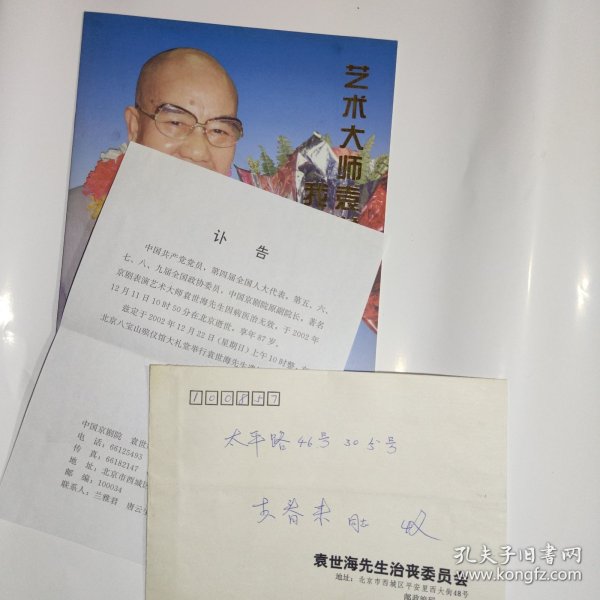 艺术大师袁
我
讣告
中国共产党党员，第四届全国人大代表，第五、六、
七、八、九届全国政协委员，中国京剧院原副院长，著名
京剧表演艺术大师袁世海先生因病医治无效，于2002年
12月11日10时50分在北京逝世，享年87岁。
兹定于2002年12月22日（星期日）上午10时整，在
北京八宝山殡仪馆大礼堂举行袁世海先生
中国京剧院 袁世
电 话：66125493
传 真：66182147
地 址：北京市西城区
邮 编：100034
联系人：兰雅督 唐云
100857
太平路46号305号
春来同志 收
袁世海先生治丧委员会
地址：北京市西城区平安里西大街48号
邮政编码
孔夫子旧书网
www.kongfz.com